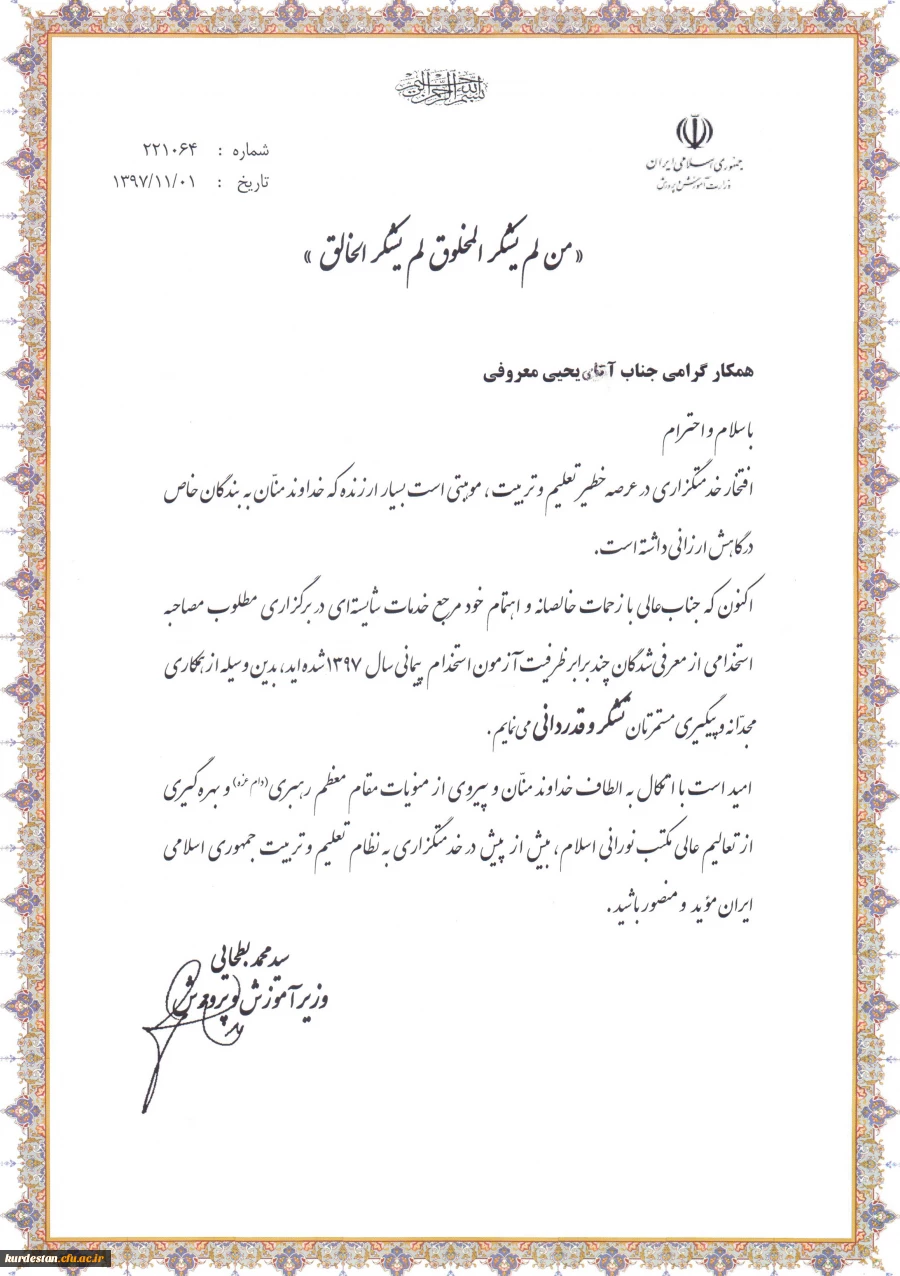 بسم الله الرحمن الرحیم
جمهوری اسلامی ایران
وزارت آموزش و پرورش
شماره : ۲۲۱۰۶۴
تاریخ : ۱۳۹۷/۱۱/۰۱
« من لم یشکر المخلوق لم یشکر الخالق »
همکار گرامی جناب آقای یحیی معروفی
با سلام و احترام
افتخار خدمتگزاری در عرصه خطیر تعلیم و تربیت، موهبتی است بسیار ارزنده که خداوند منّان به بندگان خاص
درگاهش ارزانی داشته است.
اکنون که جناب‌عالی با زحمات خالصانه و اهتمام خود مرجع خدمات شایسته‌ای در برگزاری مطلوب مصاحبه
استخدامی از معرفی‌شدگان چند برابر ظرفیت آزمون استخدام پیمانی سال ۱۳۹۷ شده‌اید، بدین وسیله از همکاری
مجدّانه و پیگیری مستمرتان تشکر و قدردانی می‌نمایم.
امید است با اتکال به الطاف خداوند منّان و پیروی از منویات مقام معظم رهبری (دام عزّه) و بهره‌گیری
از تعالیم عالی مکتب نورانی اسلام، بیش از پیش در خدمتگزاری به نظام تعلیم و تربیت جمهوری اسلامی
ایران مؤید و منصور باشید.
سید محمد بطحایی
وزیر آموزش و پرورش
kurdestan.cfu.ac.ir